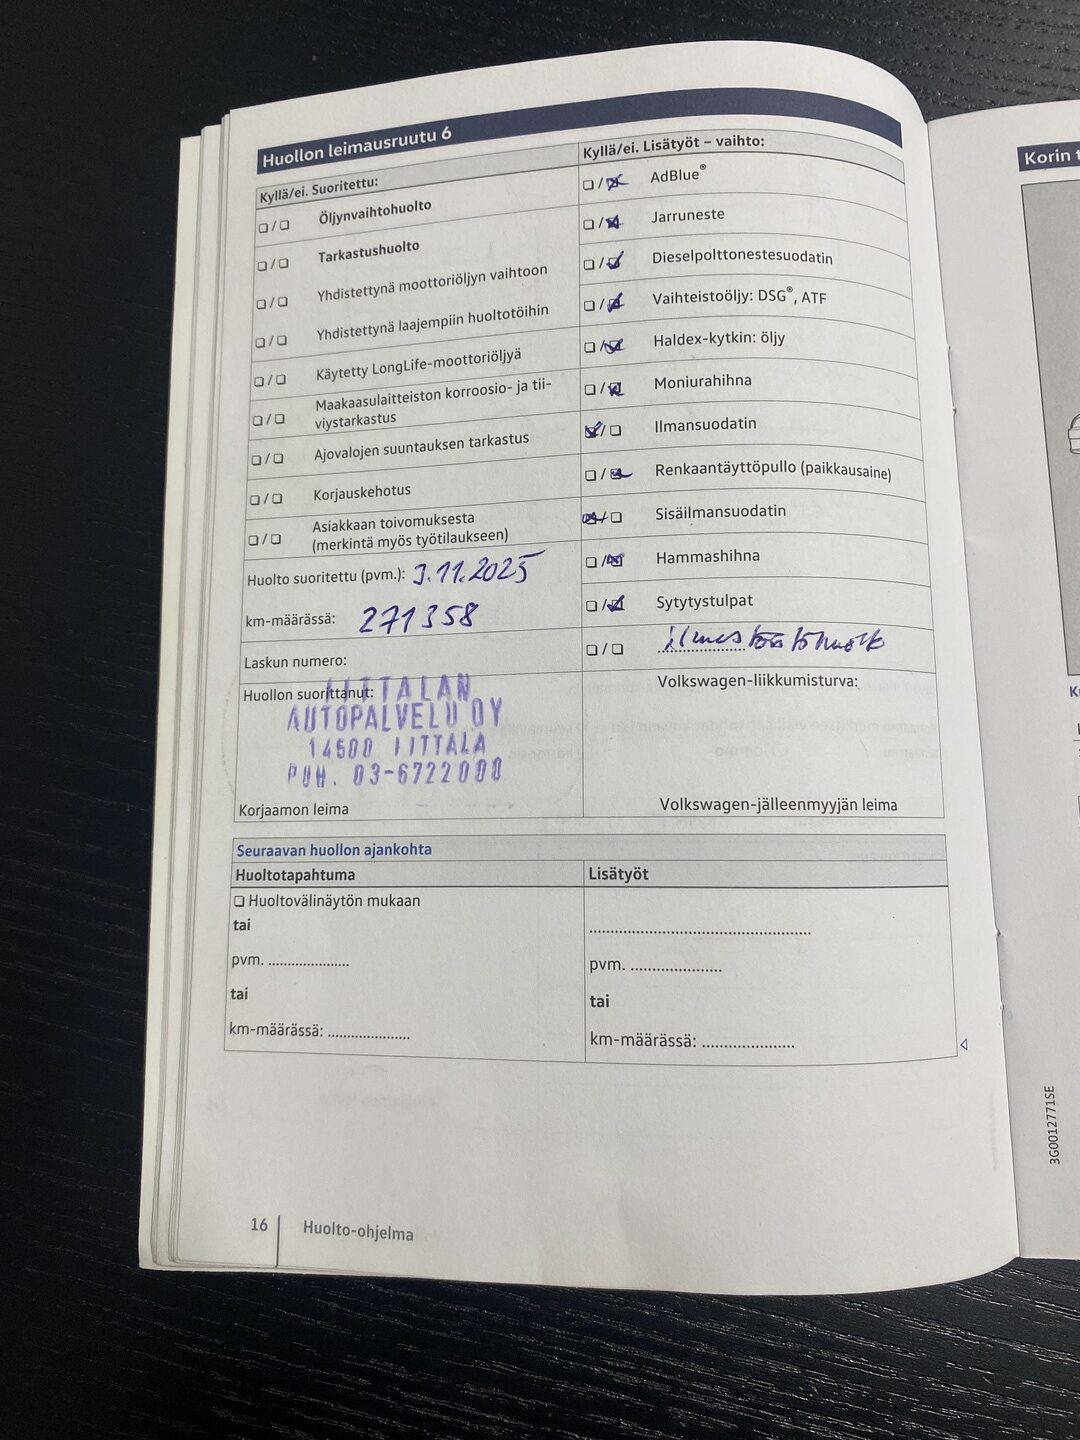 Huollon leimausruutu 6
Kyllä/ei. Suoritettu:
❏ / ❏ Öljynvaihtohuolto
❏ / ❏ Tarkastushuolto
❏ / ❏ Yhdistettynä moottoriöljyn vaihtoon
❏ / ❏ Yhdistettynä laajempiin huoltotöihin
❏ / ❏ Käytetty LongLife-moottoriöljyä
❏ / ❏ Maakaasulaitteiston korroosio- ja tii-
viystarkastus
❏ / ❏ Ajovalojen suuntauksen tarkastus
❏ / ❏ Korjauskehotus
❏ / ❏ Asiakkaan toivomuksesta
(merkintä myös työtilaukseen)
Huolto suoritettu (pvm.): 3.11.2025
km-määrässä: 271358
Laskun numero:
Huollon suorittanut:
IITTALAN
AUTOPALVELU OY
14500 IITTALA
PUH. 03-6722000
Korjaamon leima
Kyllä/ei. Lisätyöt – vaihto:
AdBlue®
Jarruneste
Dieselpolttonestesuodatin
Vaihteistoöljy: DSG®, ATF
Haldex-kytkin: öljy
Moniurahihna
Ilmansuodatin
Renkaantäyttöpullo (paikkausaine)
Sisäilmansuodatin
Hammashihna
Sytytystulpat
❏ / ❏
Volkswagen-liikkumisturva:
Volkswagen-jälleenmyyjän leima
Seuraavan huollon ajankohta
Huoltotapahtuma
❏ Huoltovälinäytön mukaan
tai
pvm. ....................
tai
km-määrässä: ....................
Lisätyöt
..................................................
pvm. ......................
tai
km-määrässä: ......................
16 Huolto-ohjelma
Korin t
3G0012771SE